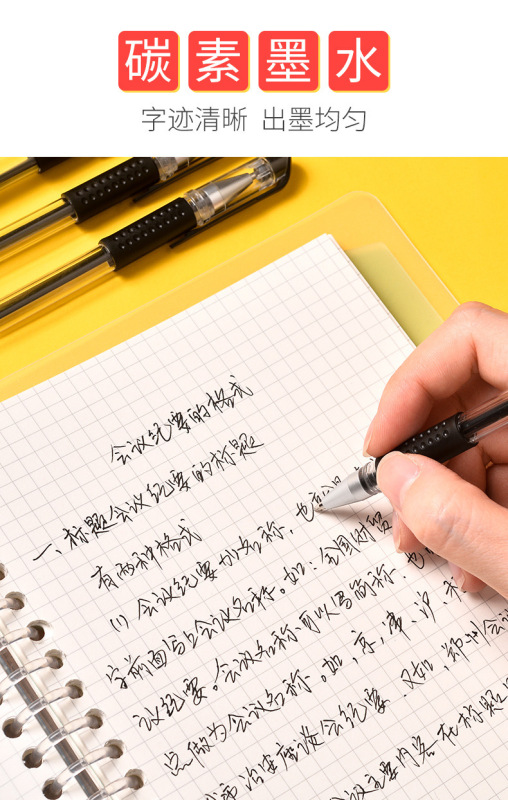 碳素墨水
字迹清晰 出墨均匀
会议纪要的格式
一、标题会议纪要的标题
有两种格式
(1) 会议纪要加名称，也
字前面写上会议名称。如：全国财贸
议纪要。会议名称可以写简称，也
点做为会议名称。如，京、津、沪、
市治安座谈会纪要，又如，郑州会议
主要内容在标题